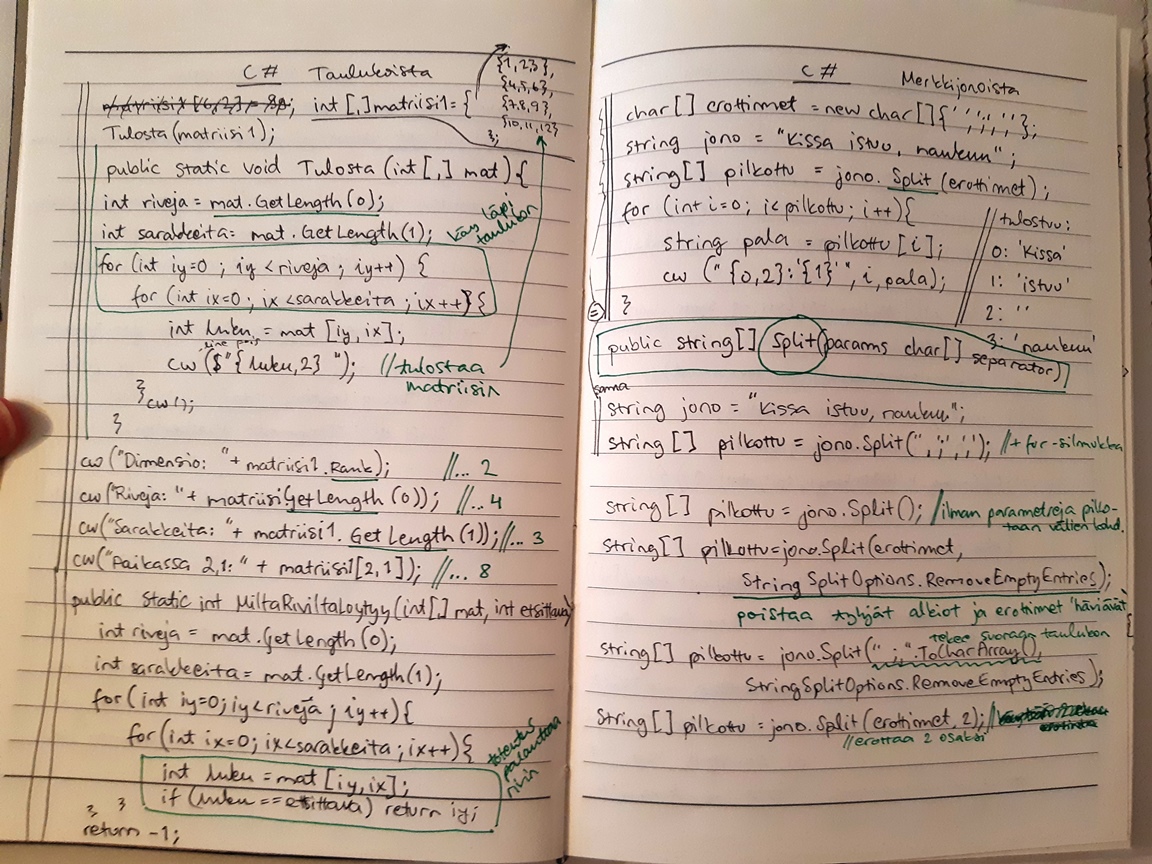 C# Taulukoista
int [,] matriisi1 = {
{1,2,3},
{4,5,6},
{7,8,9},
{10,11,12}
};
Tulosta (matriisi1);
public static void Tulosta (int [,] mat) {
int riveja = mat.GetLength(0);
int sarakkeita = mat.GetLength(1);
käy läpi
taulukon
for (int iy=0 ; iy < riveja ; iy++) {
for (int ix=0 ; ix < sarakkeita ; ix++) {
int luku = mat [iy, ix];
cw ($"{luku,2} "); //tulostaa
matriisin
}
cw();
}
cw ("Dimensio: " + matriisi1.Rank); //... 2
cw ("Riveja: " + matriisi.GetLength (0)); //... 4
cw ("Sarakkeita: " + matriisi1.Get Length (1)); //... 3
cw ("Paikassa 2,1: " + matriisi1[2,1]); //... 8
public static int MiltaRiviltaLoytyy (int[,] mat, int etsittava)
int riveja = mat.GetLength(0);
int sarakkeita = mat.GetLength(1);
for (int iy=0; iy < riveja ; iy++) {
for (int ix=0; ix < sarakkeita ; ix++) {
int luku = mat [iy, ix];
if (luku == etsittava) return iy;
toteutus
palauttaa
rivin
} }
return -1;
C# Merkkijonoista
char[] erottimet = new char[]{' ',',',';'};
string jono = "Kissa istuu, naukuu";
string[] pilkottu = jono.Split (erottimet);
for (int i=0; i< pilkottu ; i++) {
string pala = pilkottu [i];
cw (" {0,2}:'{1}'", i, pala);
}
// tulostuu:
0: 'Kissa'
1: 'istuu'
2: ''
3: 'naukuu'
public string[] Split (params char[] separator)
sama
string jono = "Kissa istuu, naukuu";
string[] pilkottu = jono.Split(' ',',',';'); //+ for-silmukka
string[] pilkottu = jono.Split(); //ilman parametreja pilko-
taan välien kohd.
string[] pilkottu = jono.Split(erottimet,
String SplitOptions.RemoveEmptyEntries);
poistaa tyhjät alkiot ja erottimet 'häviävät'
tekee suoraan taulukon
string[] pilkottu = jono.Split(" ,;".ToCharArray(),
StringSplitOptions.RemoveEmptyEntries);
String[] pilkottu = jono.Split (erottimet, 2);
//erottaa 2 osaksi